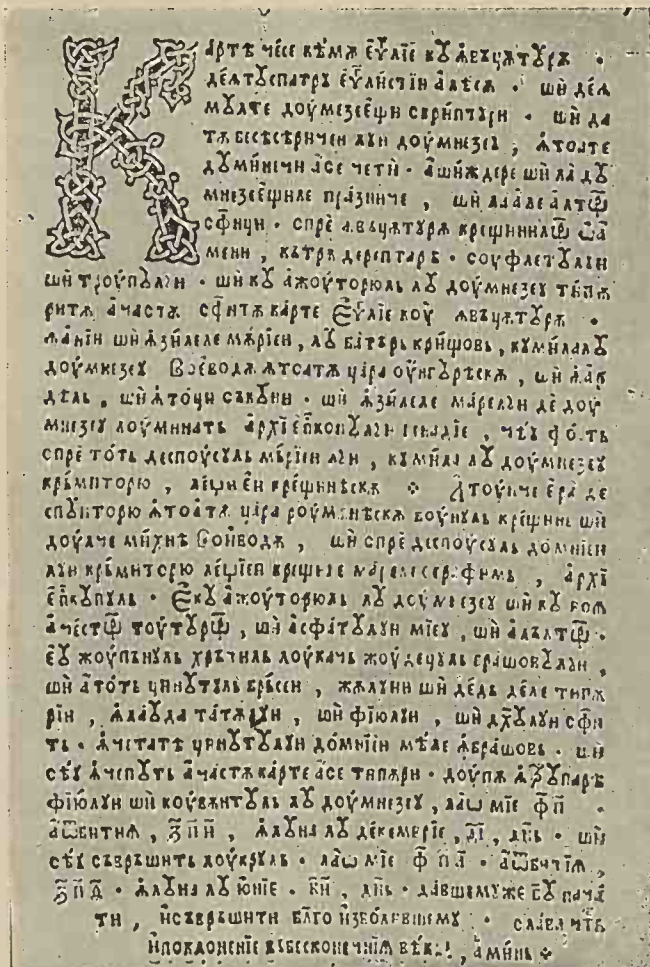 Картѣ чѣсе кѣмѫ єѵⷢ҇лїе кꙋ ꙟвъцѫтꙋрѫ ·
деꙟтꙋспатрꙋ єѵⷢ҇листїи алѣсѫ · ши деꙟ
мꙋлте доумєзеєщи скриптꙋри · ши да
тѫ бесѣсѣричеи лꙋи доумнєзеꙋ , ꙟтоате
дꙋминечи асе чети · ашиждере ши ла дꙋ
мнезеєщиле празниче , ши
сфинци · спре ꙟвъцѫтꙋрѫ крещинилѡр
мени , кътрѫ дерептаре · соуфлетꙋлꙋи
ши троупꙋлꙋи · ши кꙋ ажоуторюль лꙋ доумнєзеꙋ типѫ
ритѫ ачастѫ сфнтѫ карте Єѵⷢ҇лїе коу ꙟвъцѫтꙋрѫ ·
ꙟанїи ши ꙟзилеле мѫрїеи , лꙋ батърь крищовь , кꙋмилалꙋ
доумнєзеꙋ Воєводѫ ꙟтоатѫ цара оунгꙋрѣскѫ , ши ꙟар
дѣль , ши ꙟтоци съкꙋии · ши ꙟзилеле марелꙋи де доу
мнезеꙋ лоуминать архїєпⷭ҇копꙋлꙋи генадїе , чѣꙋ фо́ть
спре тоть деспоусꙋль мѫрїеи лꙋи , кꙋмила лꙋ доумнєзеꙋ
кръмиторю , лещиєи крещинѣскѫ ⁘ Атоунче єра де
спꙋиторю ꙟтоатѫ цара роумѫнѣскѫ боунꙋль крещинь ши
доулче михнѣ Воиводѫ , ши спре деспоусꙋль домнїеи
лꙋи кръмиторю лещїеи крещине мареле серафимь , архї
єпⷭ҇кꙋпꙋль · Єкꙋ ажоуторюль лꙋ доумнєзеꙋ ши кꙋ воѫ
ачестѡр тоутꙋрѡр , ши асфатꙋлꙋи мїеꙋ , ши алалтѡр ·
єꙋ жоупѫнꙋль хръжиль лоукачь жоудецꙋль брашовꙋлꙋи ,
ши атоть цинꙋтꙋль бръсеи , жѫлꙋии ши дедь деле типѫ
рїи , ꙟлаꙋда татѫлꙋи , ши фїюлꙋи , ши дх҃ꙋлꙋи сфн
ть · ꙟчетате цинꙋтꙋлꙋи домнїи мѣле ꙟбрашовь · ши
сѣꙋ ꙟчепꙋть ачастѫ карте асе типѫри · доупѫ
фїюлꙋи ши коувѫнтꙋль лꙋ доумнєзеꙋ , лаѡ мїе ф҃п ·
аѡвитиѧ , ҂зп҃и , ꙟлꙋна лꙋ декемврїе , д҃і , днь · ши
сѣꙋ съвръшить лоукрꙋль · лаѡ мїе ф҃ п҃а · аѡвѣчїѧ ,
҂зп҃д · ꙟлꙋна лꙋ юнїе · к҃и , днь · давшемꙋже б҃ꙋ нача
ти , исъвръшити бл҃го изволевшемꙋ · слава чⷭ҇ть
ипоклоненїе въбесконечнїѧ вѣкы , аминь ⁘